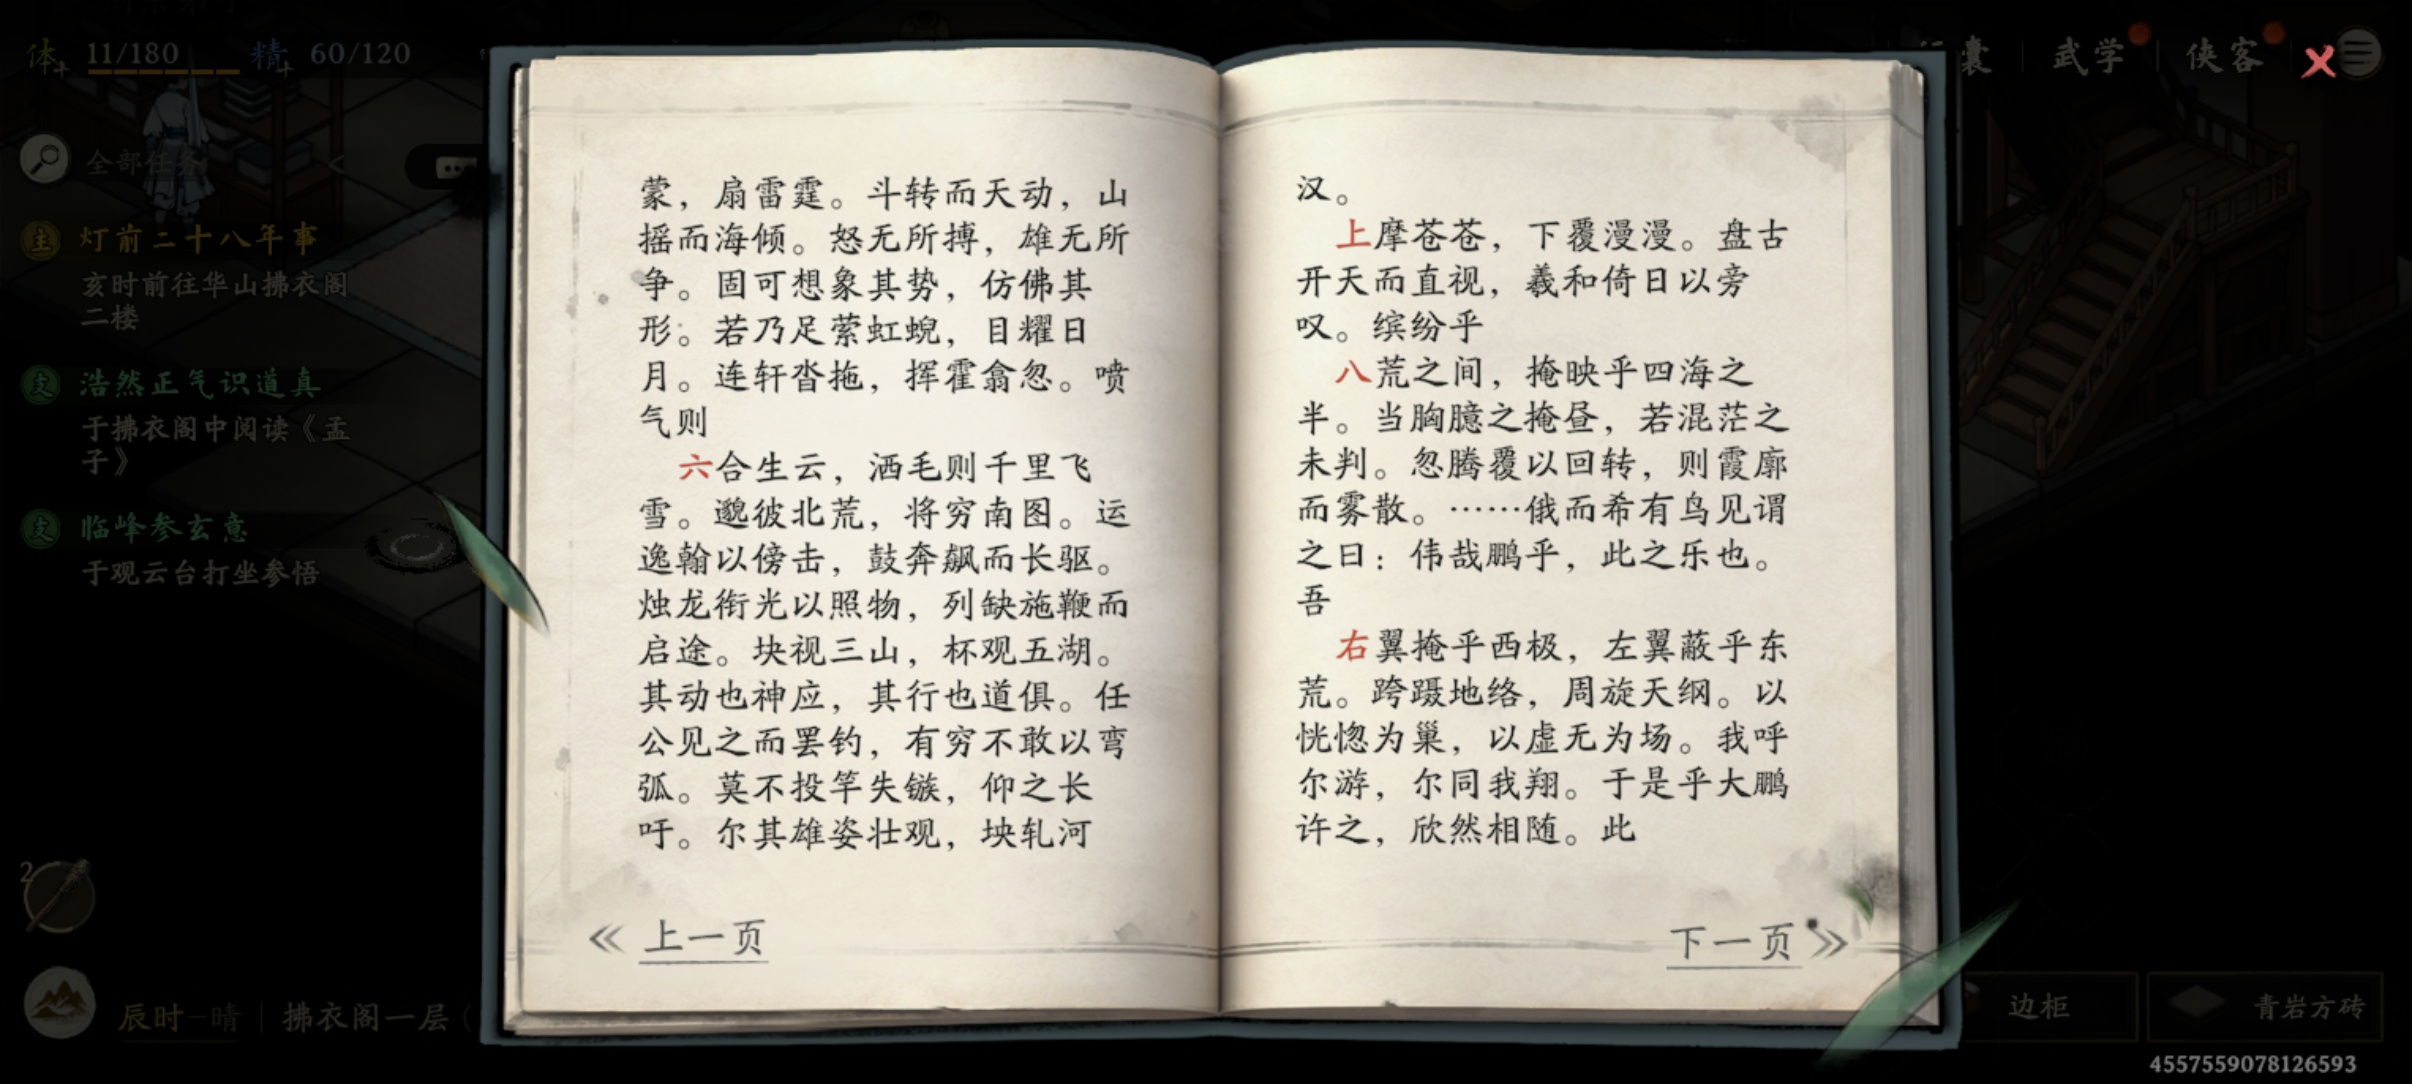 体 11/180 精 60/120
囊 武学 侠客
全部任务
主 灯前二十八年事
亥时前往华山拂衣阁
二楼
支 浩然正气识道真
于拂衣阁中阅读《孟
子》
支 临峰参玄意
于观云台打坐参悟
2
辰时-晴 | 拂衣阁一层（
蒙，扇雷霆。斗转而天动，山
摇而海倾。怒无所搏，雄无所
争。固可想象其势，仿佛其
形。若乃足萦虹蜺，目耀日
月。连轩沓拖，挥霍翕忽。喷
气则
六合生云，洒毛则千里飞
雪。邈彼北荒，将穷南图。运
逸翰以傍击，鼓奔飙而长驱。
烛龙衔光以照物，列缺施鞭而
启途。块视三山，杯观五湖。
其动也神应，其行也道俱。任
公见之而罢钓，有穷不敢以弯
弧。莫不投竿失镞，仰之长
吁。尔其雄姿壮观，坱轧河
《 上一页
汉。
上摩苍苍，下覆漫漫。盘古
开天而直视，羲和倚日以旁
叹。缤纷乎
八荒之间，掩映乎四海之
半。当胸臆之掩昼，若混茫之
未判。忽腾覆以回转，则霞廓
而雾散。……俄而希有鸟见谓
之曰：伟哉鹏乎，此之乐也。
吾
右翼掩乎西极，左翼蔽乎东
荒。跨蹑地络，周旋天纲。以
恍惚为巢，以虚无为场。我呼
尔游，尔同我翔。于是乎大鹏
许之，欣然相随。此
下一页 》
边柜
青岩方砖
4557559078126593